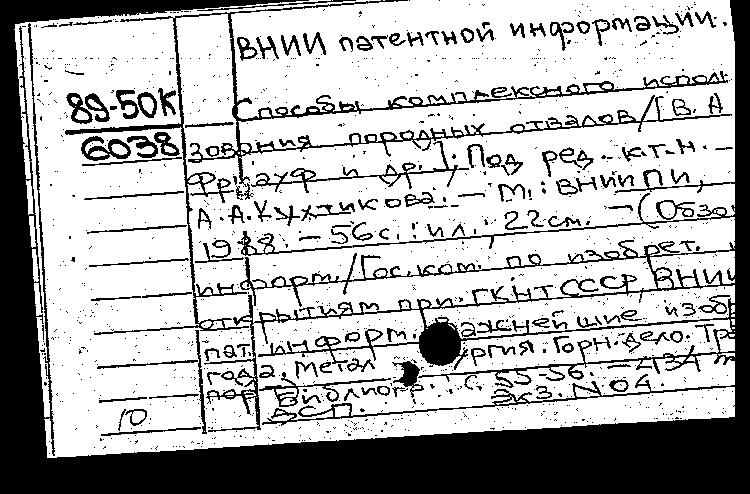 ВНИИ патентной информации.
89-50К
6038
Способы комплексного исполь
зования породных отвалов/[В. А
Фрауф и др.]; Под ред. к.т.н. —
А. А. Кухтикова. — М.: ВНИИПИ,
1988. — 56 с.: ил.; 22 см. — (Обзо
информ./Гос. ком. по изобрет.
открытиям при ГКНТ СССР, ВНИИ
пат. информ. Важнейшие изобр
года, Метал ургия. Горн. дело. Тр
Библиогр.: с. 55-56. — 434
ДСП. Экз. N 04.
10